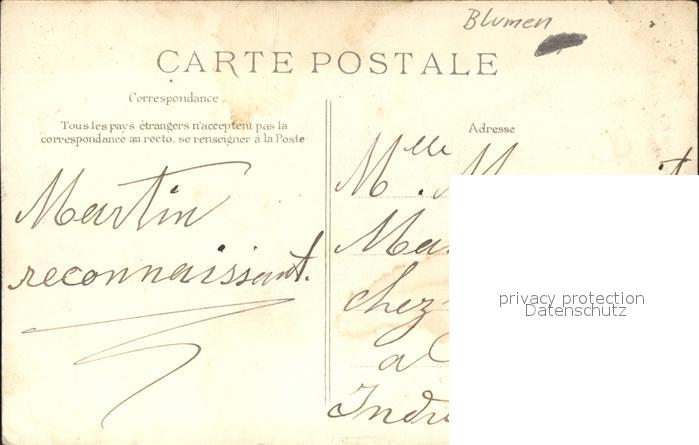 Blumen
CARTE POSTALE
Correspondance
Tous les pays étrangers n'acceptent pas la
correspondance au recto. se renseigner à la Poste
Martin
reconnaissant.
Adresse
Mlle
chez
a
privacy protection
Datenschutz